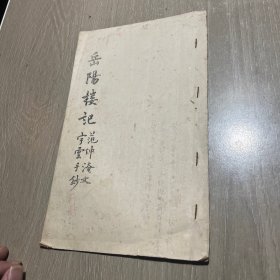 岳陽樓記
范仲淹文
宇雲手鈔